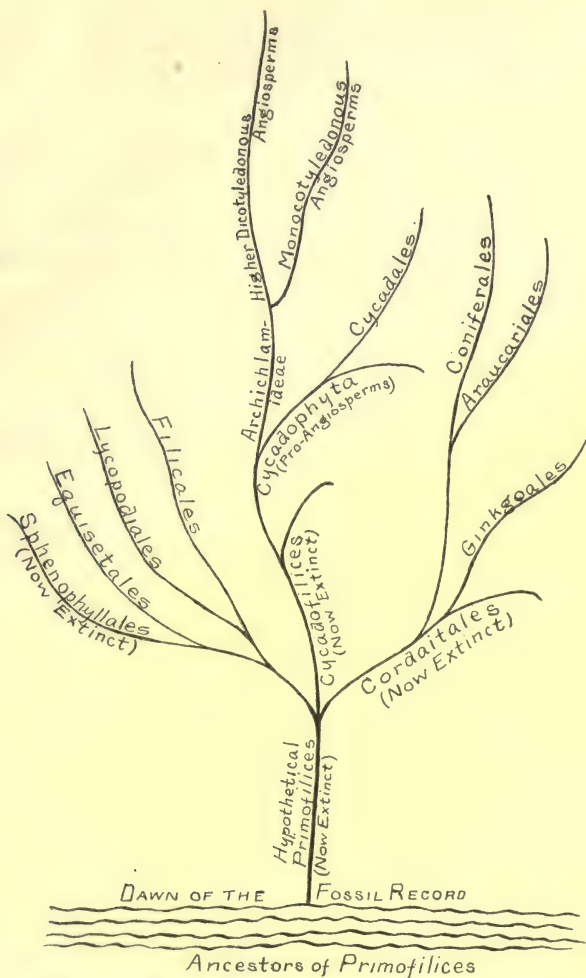 Higher Dicotyledonous
Angiosperms
Monocotyledonous
Angiosperms
Archichlam-
ideae
Cycadales.
Cycadophyta
(Pro-Angiosperms)
Coniferales
Araucariales
Filicales
Lycopodiales
Equisetales
Sphenophyllales
(Now Extinct)
Cycadofilices
(Now Extinct)
Ginkgoales
Cordaitales
(Now Extinct)
Hypothetical
Primofilices
(Now Extinct)
DAWN OF THE FOSSIL RECORD
Ancestors of Primofilices